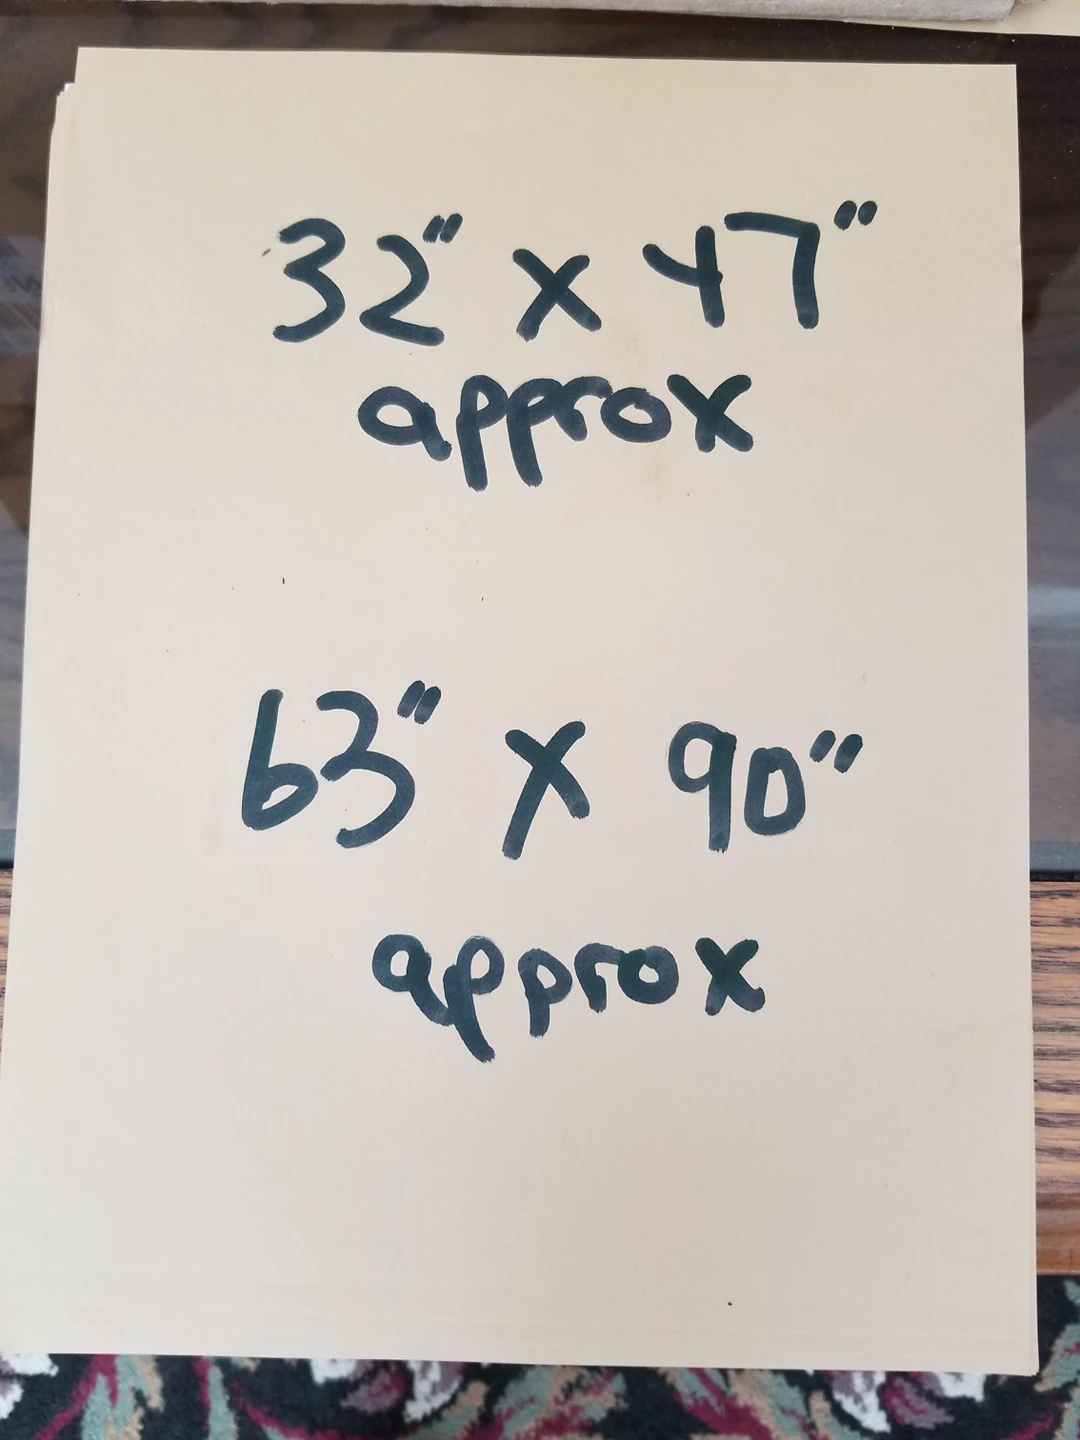 32" x 47"
approx
63" x 90"
approx